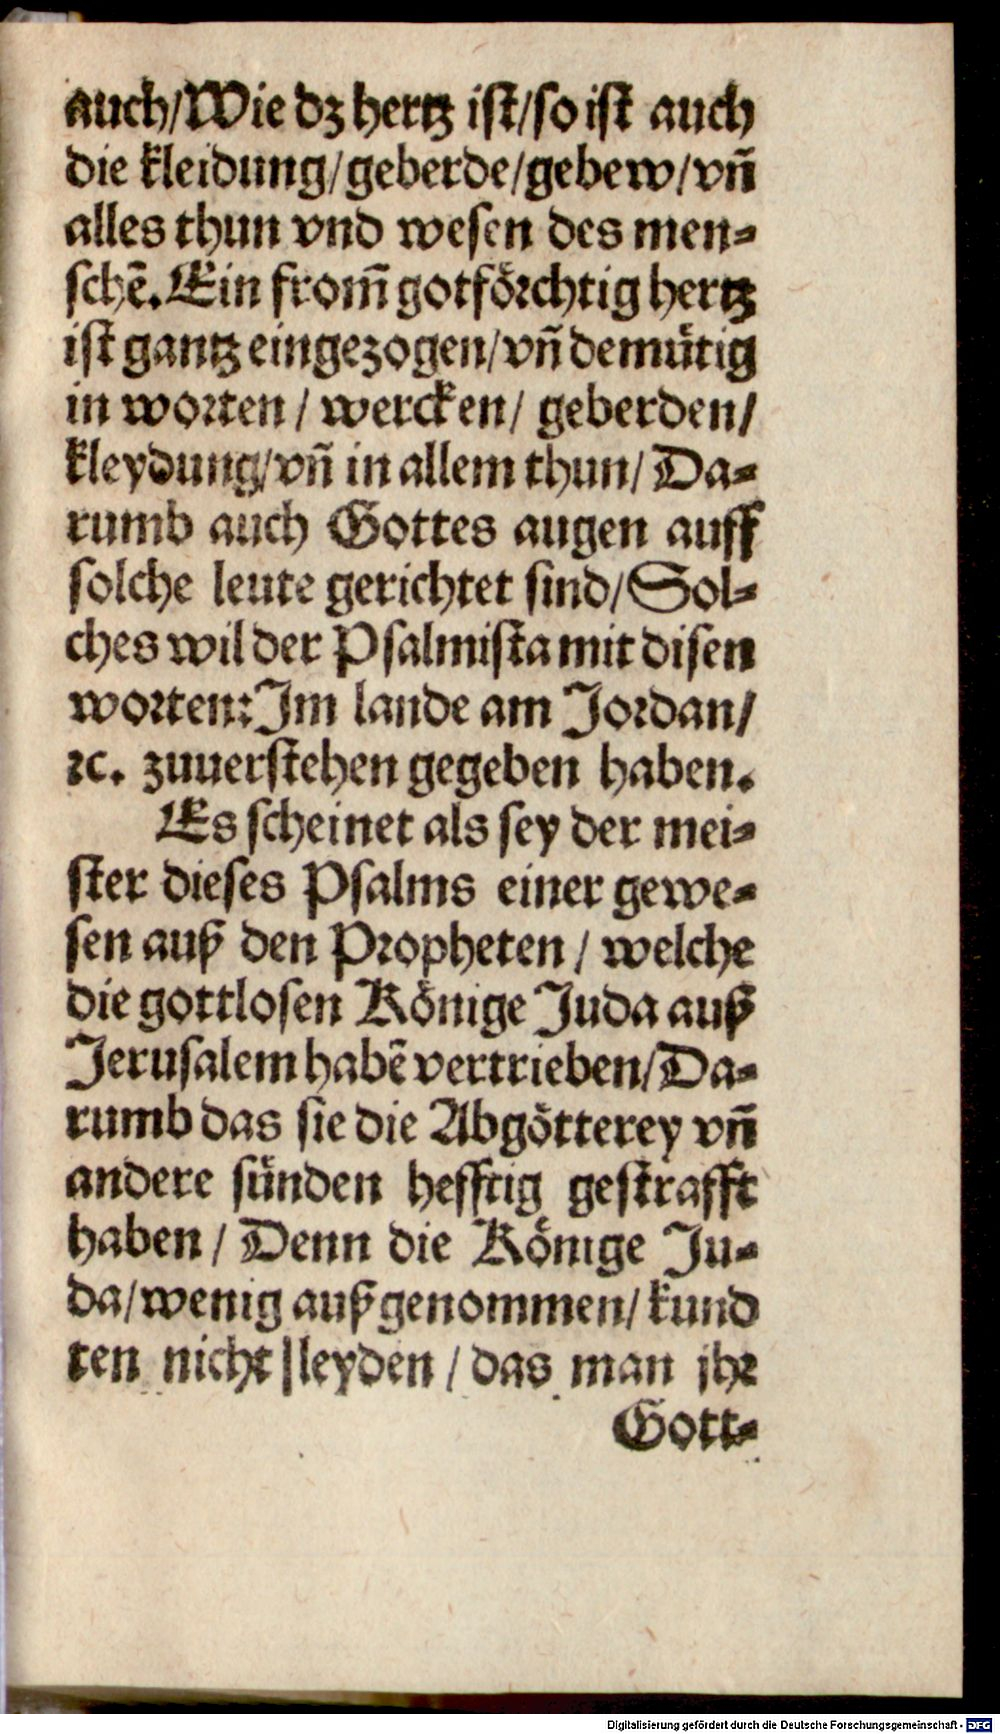 auch/Wie dz hertz ist/so ist auch
die kleidung/geberde/gebew/vñ
alles thun vnd wesen des men⸗
schẽ.Ein from̃ gotfoͤrchtig hertz
ist gantz eingezogen/vñ demuͤtig
in worten / wercken/ geberden/
kleydung/vñ in allem thun/ Da⸗
rumb auch Gottes augen auff
solche leute gerichtet sind/Sol⸗
ches wil der Psalmista mit disen
worten: Im lande am Jordan/
ꝛc. zuuerstehen gegeben haben.
Es scheinet als sey der mei⸗
ster dieses Psalms einer gewe⸗
sen auß den Propheten / welche
die gottlosen Koͤnige Juda auß
Jerusalem habẽ vertrieben/Da⸗
rumb das sie die Abgoͤtterey vñ
andere suͤnden hefftig gestrafft
haben / Denn die Koͤnige Ju⸗
da/wenig außgenommen/ kund
ten nicht leyden / das man jhr
Gott⸗
Digitalisierung gefördert durch die Deutsche Forschungsgemeinschaft - DFG